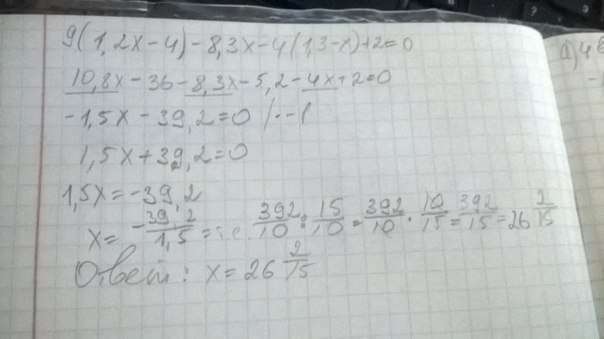 9(1,2x-4)-8,3x-4(1,3-x)+2=0
10,8x-36-8,3x-5,2-4x+2=0
-1,5x-39,2=0 /·-1
1,5x+39,2=0
1,5x=-39,2
x=-39,2/1,5= т.е. 392/10:15/10=392/10·10/15=392/15=26 2/15
Ответ: x=26 2/15